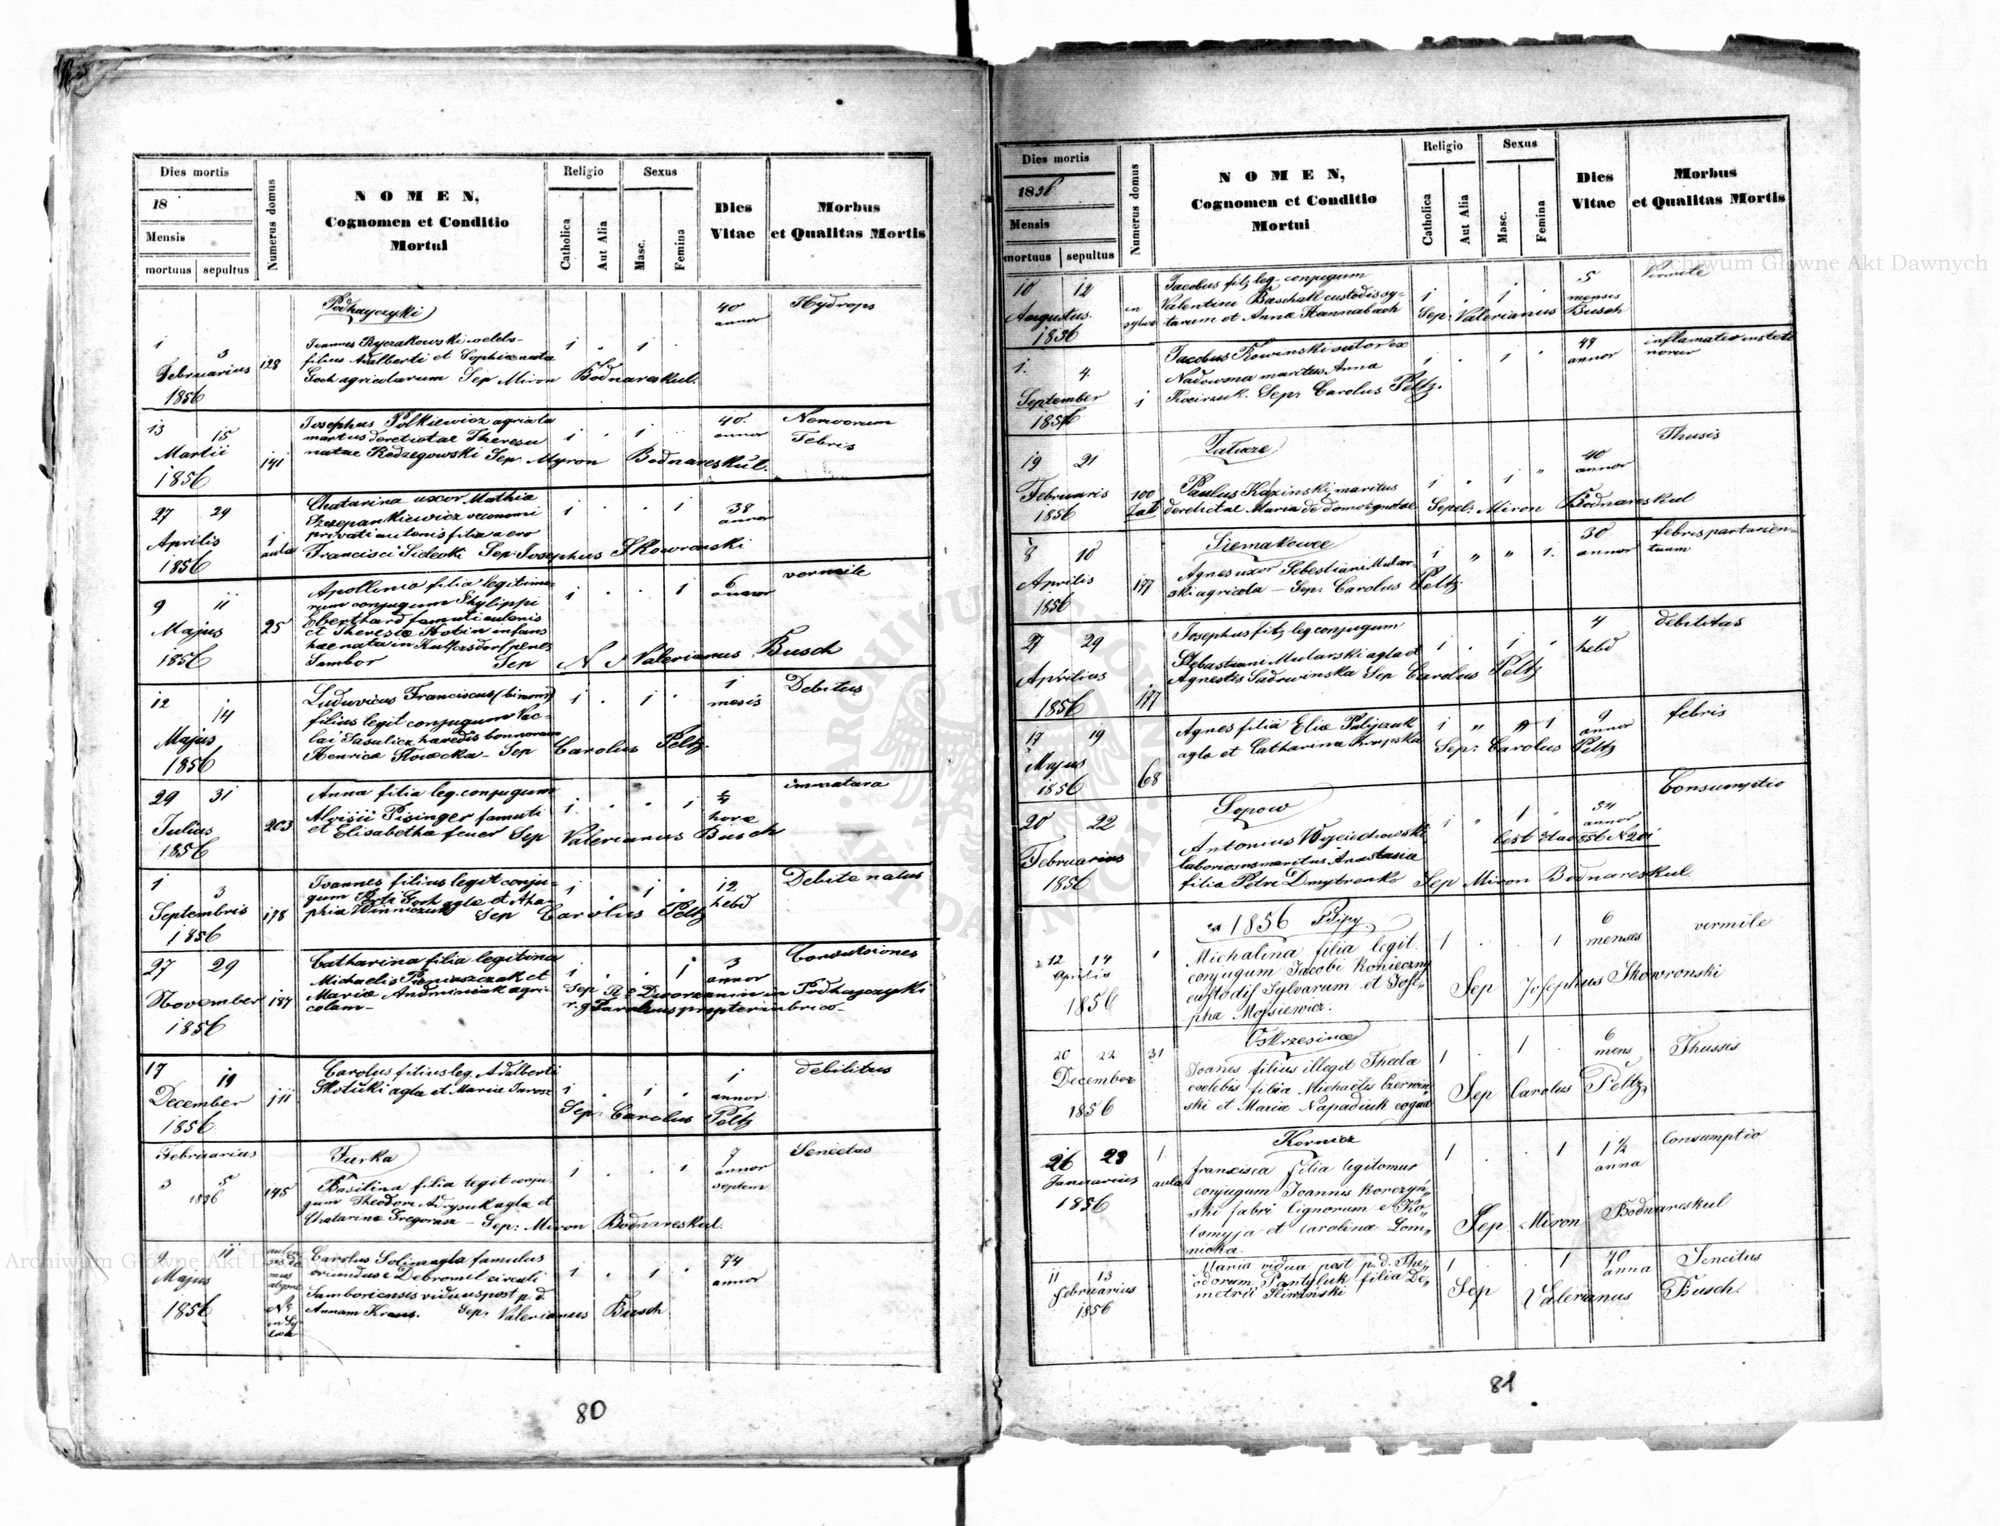 Dies mortis
18
Mensis
mortuus sepultus
Numerus domus
NOMEN,
Cognomen et Conditio
Mortui
Religio
Catholica
Aut Alia
Sexus
Masc.
Femina
Dies
Vitae
Morbus
et Qualitas Mortis
Podhayczyki
1 3
Februarius 128
1856
Joannes Ryczakowski
filius Adalberti et Sophiae nata
Goch agricolarum Sep Miron Bodnareskul.
1 . 1 .
40
annor
Hydrops
13 15
Martii 141
1856
Josephus Polkiewicz agricola
maritus derelictae Theresiae
natae Rodzegowski Sep Myron Bodnareskul.
1 . 1 .
40.
annor
Nervorum
Febris
27 29
Aprilis 1
aula
1856
Chatarina uxor Mathia
Szczepankiewicz oeconomi
Francisci Sidecki Sep: Josephus Skowronski
1 . . 1
38
annor
9 11
Majus 25
1856
Apollonia filia legitimo-
rum conjugum Phylippi
Eberthard famuli
et Theresia
Sambor Sep Valerianus Busch
1 . . 1
6
annor
vermile
12 14
Majus
1856
Ludovicus Franciscus (binom)
filius legit conjugum Vac-
lai Sasulicz haredis bonnorum
Henrica Sep Carolus Peltz.
1 . 1 .
1
mesis
Debitus
29 31
Julius 203
1856
Anna filia leg. conjugum
Aloisii Pisinger famuli
et Elisabetha feuer Sep Valerianus Busch
1 . . 1
hora
immatara
1 3
Septembris 178
1856
Joannes filius legit conju-
gum Petr Goch agla et Aga-
phia Winniczuk Sep Carolus Peltz
1 . 1 .
12
hebd
Debite natus
27 29
November 187
1856
Catharina filia legitima
Michaelis et
Maria Andminiak agri-
colam-
1 . . 1
3
annor
Convulsiones
Sep Dworzanin in Podhajczyki
17 19
December 111
1856
Carolus filius leg. Adalberti
Skotuki agla et Maria
1 . 1 .
Sep: Carolus Peltz
1
annor
debilitus
Februarius
3 5
1856
145
Turka
Basilina filia legit conju-
gum Theodori agla et
Chatarina Gregorasz - Sep: Miron Bodnareskul.
1 . . 1
7
annor
septem
Senectus
9 11
Majus
1856
Carolus famulus
oriundus e Dobromil circuli
Samboriensis viduus post p. d.
Annam Kraus. Sep: Valerianus Busch
1 . 1 .
74
annor
80
Dies mortis
1856
Mensis
mortuus sepultus
Numerus domus
NOMEN,
Cognomen et Conditio
Mortui
Religio
Catholica
Aut Alia
Sexus
Masc.
Femina
Dies
Vitae
Morbus
et Qualitas Mortis
10 12
Augustus in
sylva
1856
Jacobus fil. leg. conjugum
Valentini Baschak custodis sy-
larum et Anna Hannabach
1 . 1 .
Sep: Valerianus Busch
5
mensis
Vermile
1. 4.
September 1
1856
Jacobus Kowinski sutor ex
Nadworna maritus Anna
Sep: Carolus Peltz.
1 . 1 .
48
annor
inflamatio
19 21
Februaris 100
1856
Zalucze
Paulus Kozinski maritus
derelictae Maria de domo ignotae Sepel: Miron Bodnareskul
1 " 1 "
40
annor
Thusis
8 10
Aprilis 177
1856
Siemakowce
Agnes uxor Sebestiani Mular-
ski agricola - Sep: Carolus Peltz
1 " " 1.
30
annor
febris parturien-
tuum
27 29
Aprilius 177
1856
Josephus fil. leg conjugum
Sebastiani Mularski agla et
Agnestis Sadowinska Sep Carolus Peltz
1 . 1 .
4
hebd
debilitas
17 19
Majus 68
1856
Agnes filia Elia Palijczuk
agla et Catharina Krupska
1 " " 1
Sep: Carolus Peltz
9
annor
febris
20 22
Februarius
1856
Sopow
Antonius Wojciechowski
laboriosus maritus Anastasia
filia Petri Dmytrenko Sep Miron Bodnareskul
1 " 1 "
54
annor
Consumptio
1856 Pilipy
12 14
Aprilis
1856
Michalina filia legit.
conjugum Jacobi Konieczny
custodis sylvarum et Jose-
pha Mosiewicz.
1 . . 1
Sep Josephus Skowronski
6
menses
vermile
20 22 31
December
1856
Oskrzesince
Joanes filius illegit Thecla
coelebis filia Michaelis Czerwin
ski et Maria Napadiuk
1 . 1 .
Sep Carolus Peltz
6
mens
Thussis
26 28 1.
Januarius aula
1856
Kornicz
francisca filia legitomus
conjugum Joannis Korczyn
ski fabri lignorum e Ko-
lomyja et Carolina Som-
nicka.
1 . . 1
Sep Miron Bodnareskul
1 ½
anna
Consumptio
11 13
februarius
1856
Maria vidua post p. d. The-
odorum Pantyluk filia De-
metrii Sliwinski
1 . . 1
Sep Valerianus Busch.
70
anna
Sencitus
81
Archiwum Główne Akt Dawnych
Archiwum Główne Akt Dawnych
ARCHIWUM GŁÓWNE AKT DAWNYCH